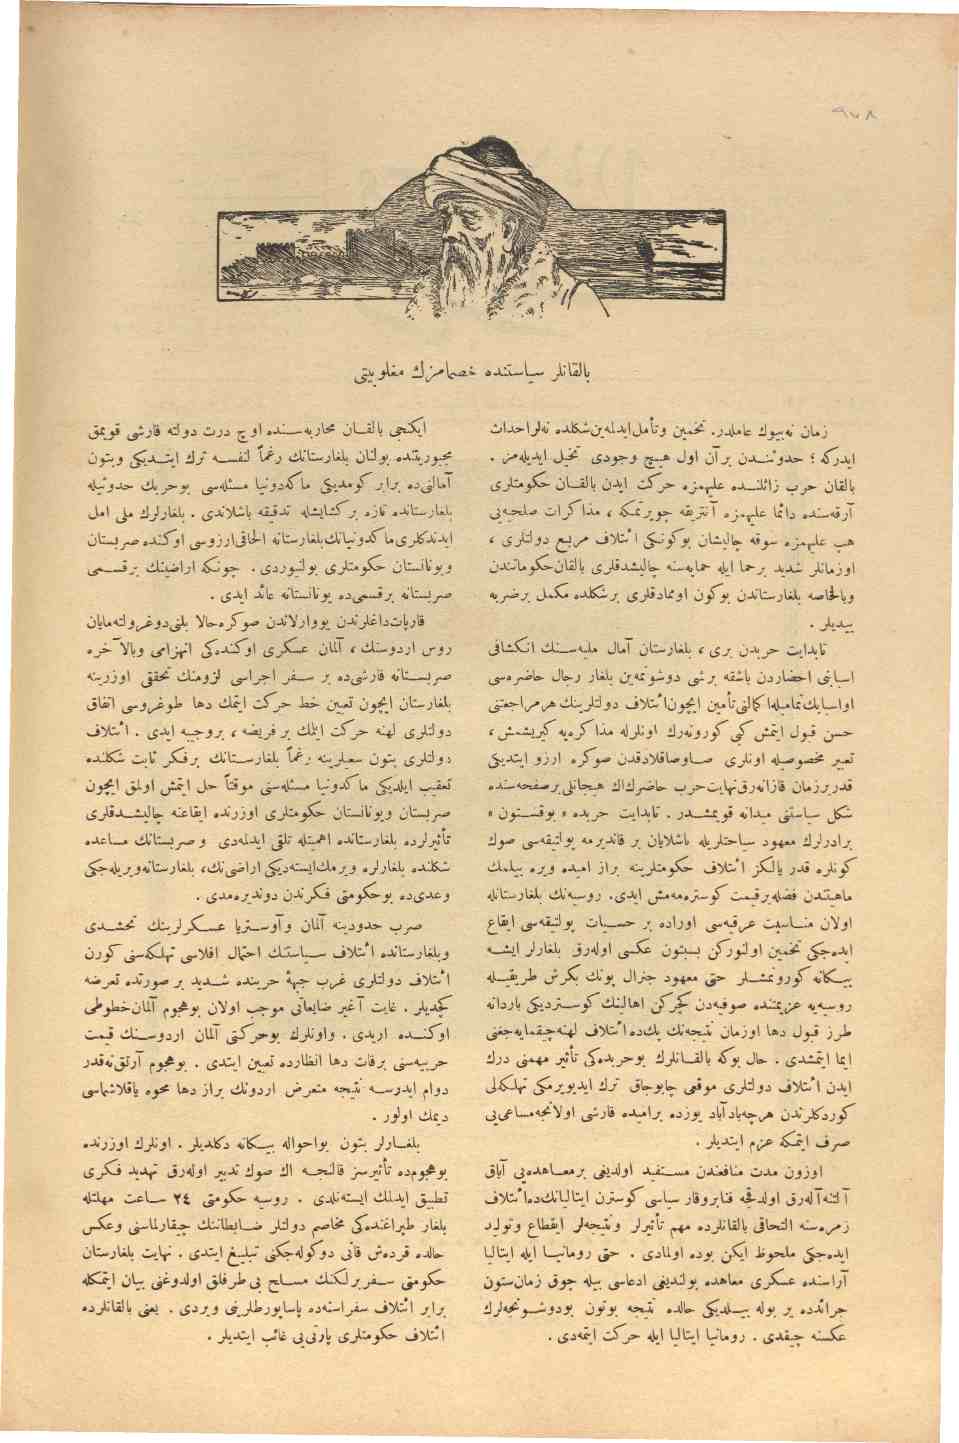 ٩٧٨
بالقانلر سیاستنده خصمامزك مغلوبیتی
زمان نه‌بیوك عاملدر. تخمین وتأمل ایدلمه‌ین شكلده نه‌لر احداث
ایدركه ؛ حدوثندن بر آن اول هیچ وجودی تخیل ایدیله‌مز .
بالقان حرب زائلنده علیهمزه حركت ایدن بالقان حكومتلری
آرقه‌سنده دائما علیهمزه آنتریقه چویرتمكه ، مذاكرات صلحیه‌یی
هب علیهمزه سوقه چالیشان بوكونكی ائتلاف مربع دولتلری ،
اوزمانلر شدید برحما ایله حمایه‌سنه چالیشدقلری بالقان حكوماتندن
وبالخاصه بلغارستاندن بوكون اوممادقلری برشكلده مكمل برضربه
ییدیلر .
تابدایت حربدن بری ، بلغارستان آمال ملیه‌سنك انكشافی
اسبابی احضاردن باشقه برشی دوشونمه‌ین بلغار رجال حاضره‌سی
اواسبابك تمامیله اكمالی تأمین ایچون ائتلاف دولتلرینك هر مراجعتنی
حسن قبول ایتمش كبی كورونه‌رك اونلرله مذاكره‌یه كیریشمش ،
تعبیر مخصوصیله اونلری صاوصاقلادقدن صوكره ارزو ایتدیكی
قدر برزمان قازانه‌رق نهایت حرب حاضرك اك هیجانلی برصفحه‌سنده
شكل سیاستنی میدانه قویمشدر . تابدایت حربده « بوقستون »
برادرلرك معهود سیاحتلریله باشلایان بر قاندیرمه پولتیقه‌سی صوك
كونلره قدر یالكز ائتلاف حكومتلرینه براز امیده ویره بیلمك
ماهیتندن فضله برقیمت كوستره‌مه‌مش ایدی. روسیه‌نك بلغارستانله
اولان مناسبت عرقیه‌سی اوراده بر حسیات پولتیقه‌سی ایقاع
ایده‌جكی تخمین اولنوركن بسبتون عكسی اوله‌رق بلغارلر ایشه
بیكانه كورونمشلر حتی معهود جنرال پونك بكرش طریقیله
روسیه‌یه عزیمتنده صوفیه‌دن كچركن اهالینك كوستردیكی باردانه
طرز قبول دها اوزمان نتیجه‌نك پك‌ده ائتلاف لهنه چیقمایه‌جغنی
ایما ایتمشدی . حال بوكه بالقانلرك بوحربده‌كی تأثیر مهمنی درك
ایدن ائتلاف دولتلری موقعی چابوجاق ترك ایدیویرمكی تهلكه‌لی
كوردكلرندن هرچه‌بادآباد یوزده برامیده قارشی اولانجه مساعی‌یی
صرف ایتمكه عزم ایتدیلر .
اوزون مدت منافعندن مستفید اولدیغی برمعاهده‌یی آیاق
آلتنه آله‌رق اولدقچه فنا بروقار سیاسی كوسترن ایتالیانك‌ده ائتلاف
زمره‌سنه التحاقی بالقانلرده مهم تأثیرلر ونتیجه‌لر ایقطاع وتولید
ایده‌جكی ملحوظ ایكن بوده اولمادی . حتی رومانیا ایله ایتالیا
آراسنده عسكری معاهده بولندیغی ادعاسی بیله چوق زمان ستون
جرائدده یر بوله بیلدیكی حالده نتیجه بوتون بودوشونجه‌لرك
عكسنه چیقدی . رومانیا ایتالیا ایله حركت ایتمه‌دی .
ایكنجی بالقان محاربه‌سنده اوچ درت دولته قارشی قویمق
مجبوریتنده بولنان بلغارستانك رغماً لنفسه ترك ایتدیكی وبتون
آمالی‌ده برابر كومدیكی ماكه‌دونیا مسئله‌سی بوحربك حدوثیله
بلغارستانده تازه بر كشایشله تدقیقه باشلاندی . بلغارلرك ملی امل
ایدندكلری ماكدونیانك بلغارستانه الحاقی ارزوسی اوكنده صربستان
ویونانستان حكومتلری بولنیوردی . چونكه اراضینك برقسمی
صربستانه برقسمی‌ده یونانستانه عائد ایدی .
قارپات‌داغلرندن یووارلاندن صوكره حالا بلنی‌دوغرولته‌مایان
روس اردوسنك ، آلمان عسكری اوكنده‌كی انهزامی وبالآخره
صربستانه قارشی‌ده بر سفر اجراسی لزومنك تحققی اوزرینه
بلغارستان ایچون تعیین خط حركت ایتمك دها طوغروسی اتفاق
دولتلری لهنه حركت ایتلك بر فریضه ، بروجیبه ایدی . ائتلاف
دولتلری بتون سعیلرینه رغماً بلغارستانك برفكر ثابت شكلنده
تعقیب ایلدیكی ماكدونیا مسئله‌سنی موقتاً حل ایتمش اولمق ایچون
صربستان ویونانستان حكومتلری اوزرنده ایقاعنه چالیشدقلری
تأثیرلرده بلغارستانده اهمیتله تلقی ایدلمه‌دی و صربستانك مساعده
شكلنده بلغارلره ویرمك‌ایسته‌دیكی اراضی‌نك، بلغارستانه‌ویریله‌جكی
وعدی‌ده بوحكومتی فكرندن دوندیره‌مدی .
صرب حدودینه آلمان وآوستریا عسكرلرینك تحشدی
وبلغارستانده ائتلاف سیاستنك احتمال افلاسی تهلكه‌سنی كورن
ائتلاف دولتلری غرب جبهۀ حربنده شدید بر صورتده تعرضه
كچدیلر . غایت آغیر ضایعاتی موجب اولان بوهجوم آلمان خطوطی
اوكنده اریدی . واونلرك بوحركتی آلمان اردوسنك قیمت
حربیه‌سنی برقات دها انظارده تعیین ایتدی . بوهجوم آرتق نه‌قدر
دوام ایدرسه نتیجه متعرض اردونك براز دها محوه یاقلاشماسی
دیمك اولور .
بلغارلر بتون بواحواله بیكانه دكلدیلر . اونلرك اوزرنده
بوهجوم‌ده تأثیرسز قالنجه اك صوك تدبیر اوله‌رق تهدید فكری
تطبیق ایدلمك ایسته‌نلدی . روسیه حكومتی ٢٤ ساعت مهلتله
بلغار طپراغنده‌كی مخاصم دولتلر ضابطاننك چیقارلماسنی وعكس
حالده قردەش قانی دوكوله‌جكنی تبلیغ ایتدی . نهایت بلغارستان
حكومتی سفربرلكنك مسلح بی‌طرفلق اولدوغنی بیان ایتمكله
برابر ائتلاف سفراسنه‌ده پاساپورطلرینی ویردی . یعنی بالقانلرده
ائتلاف حكومتلری پارتی‌یی غائب ایتدیلر .